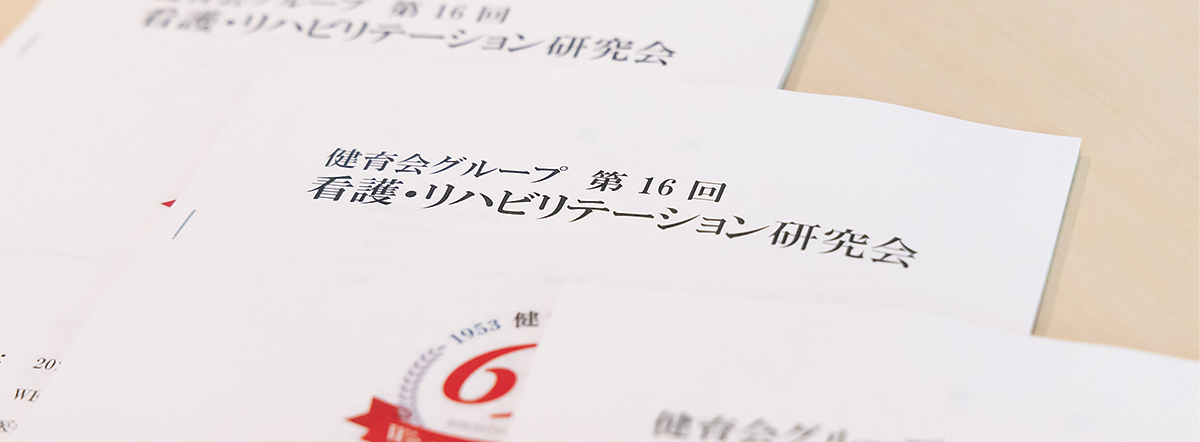 第 16 回
看護・リハビリテーション研究会
健育会グループ 第 16 回
看護・リハビリテーション研究会
1953 健
6
健育会グループ